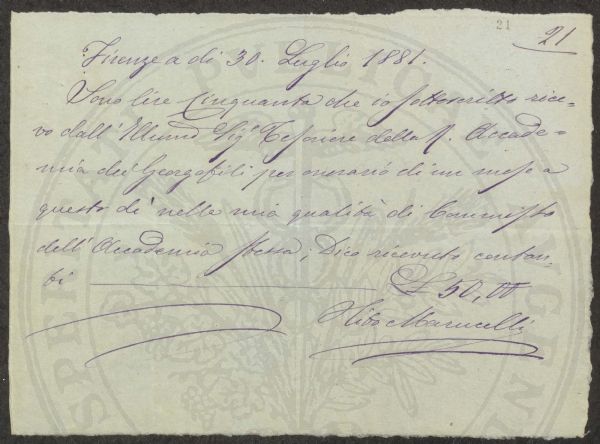 21
21
Firenze a di 30. Luglio 1881.
Sono lire Cinquanta che io sottoscritto rice-
vo dall'Illumo Sigr Tesoriere della R. Accade-
mia dei Georgofili per onorario di un mese a
questo dì nella mia qualità di Commesso
dell'Accademia stessa, Dico ricevuto contan-
ti £ 50,00
Marucelli